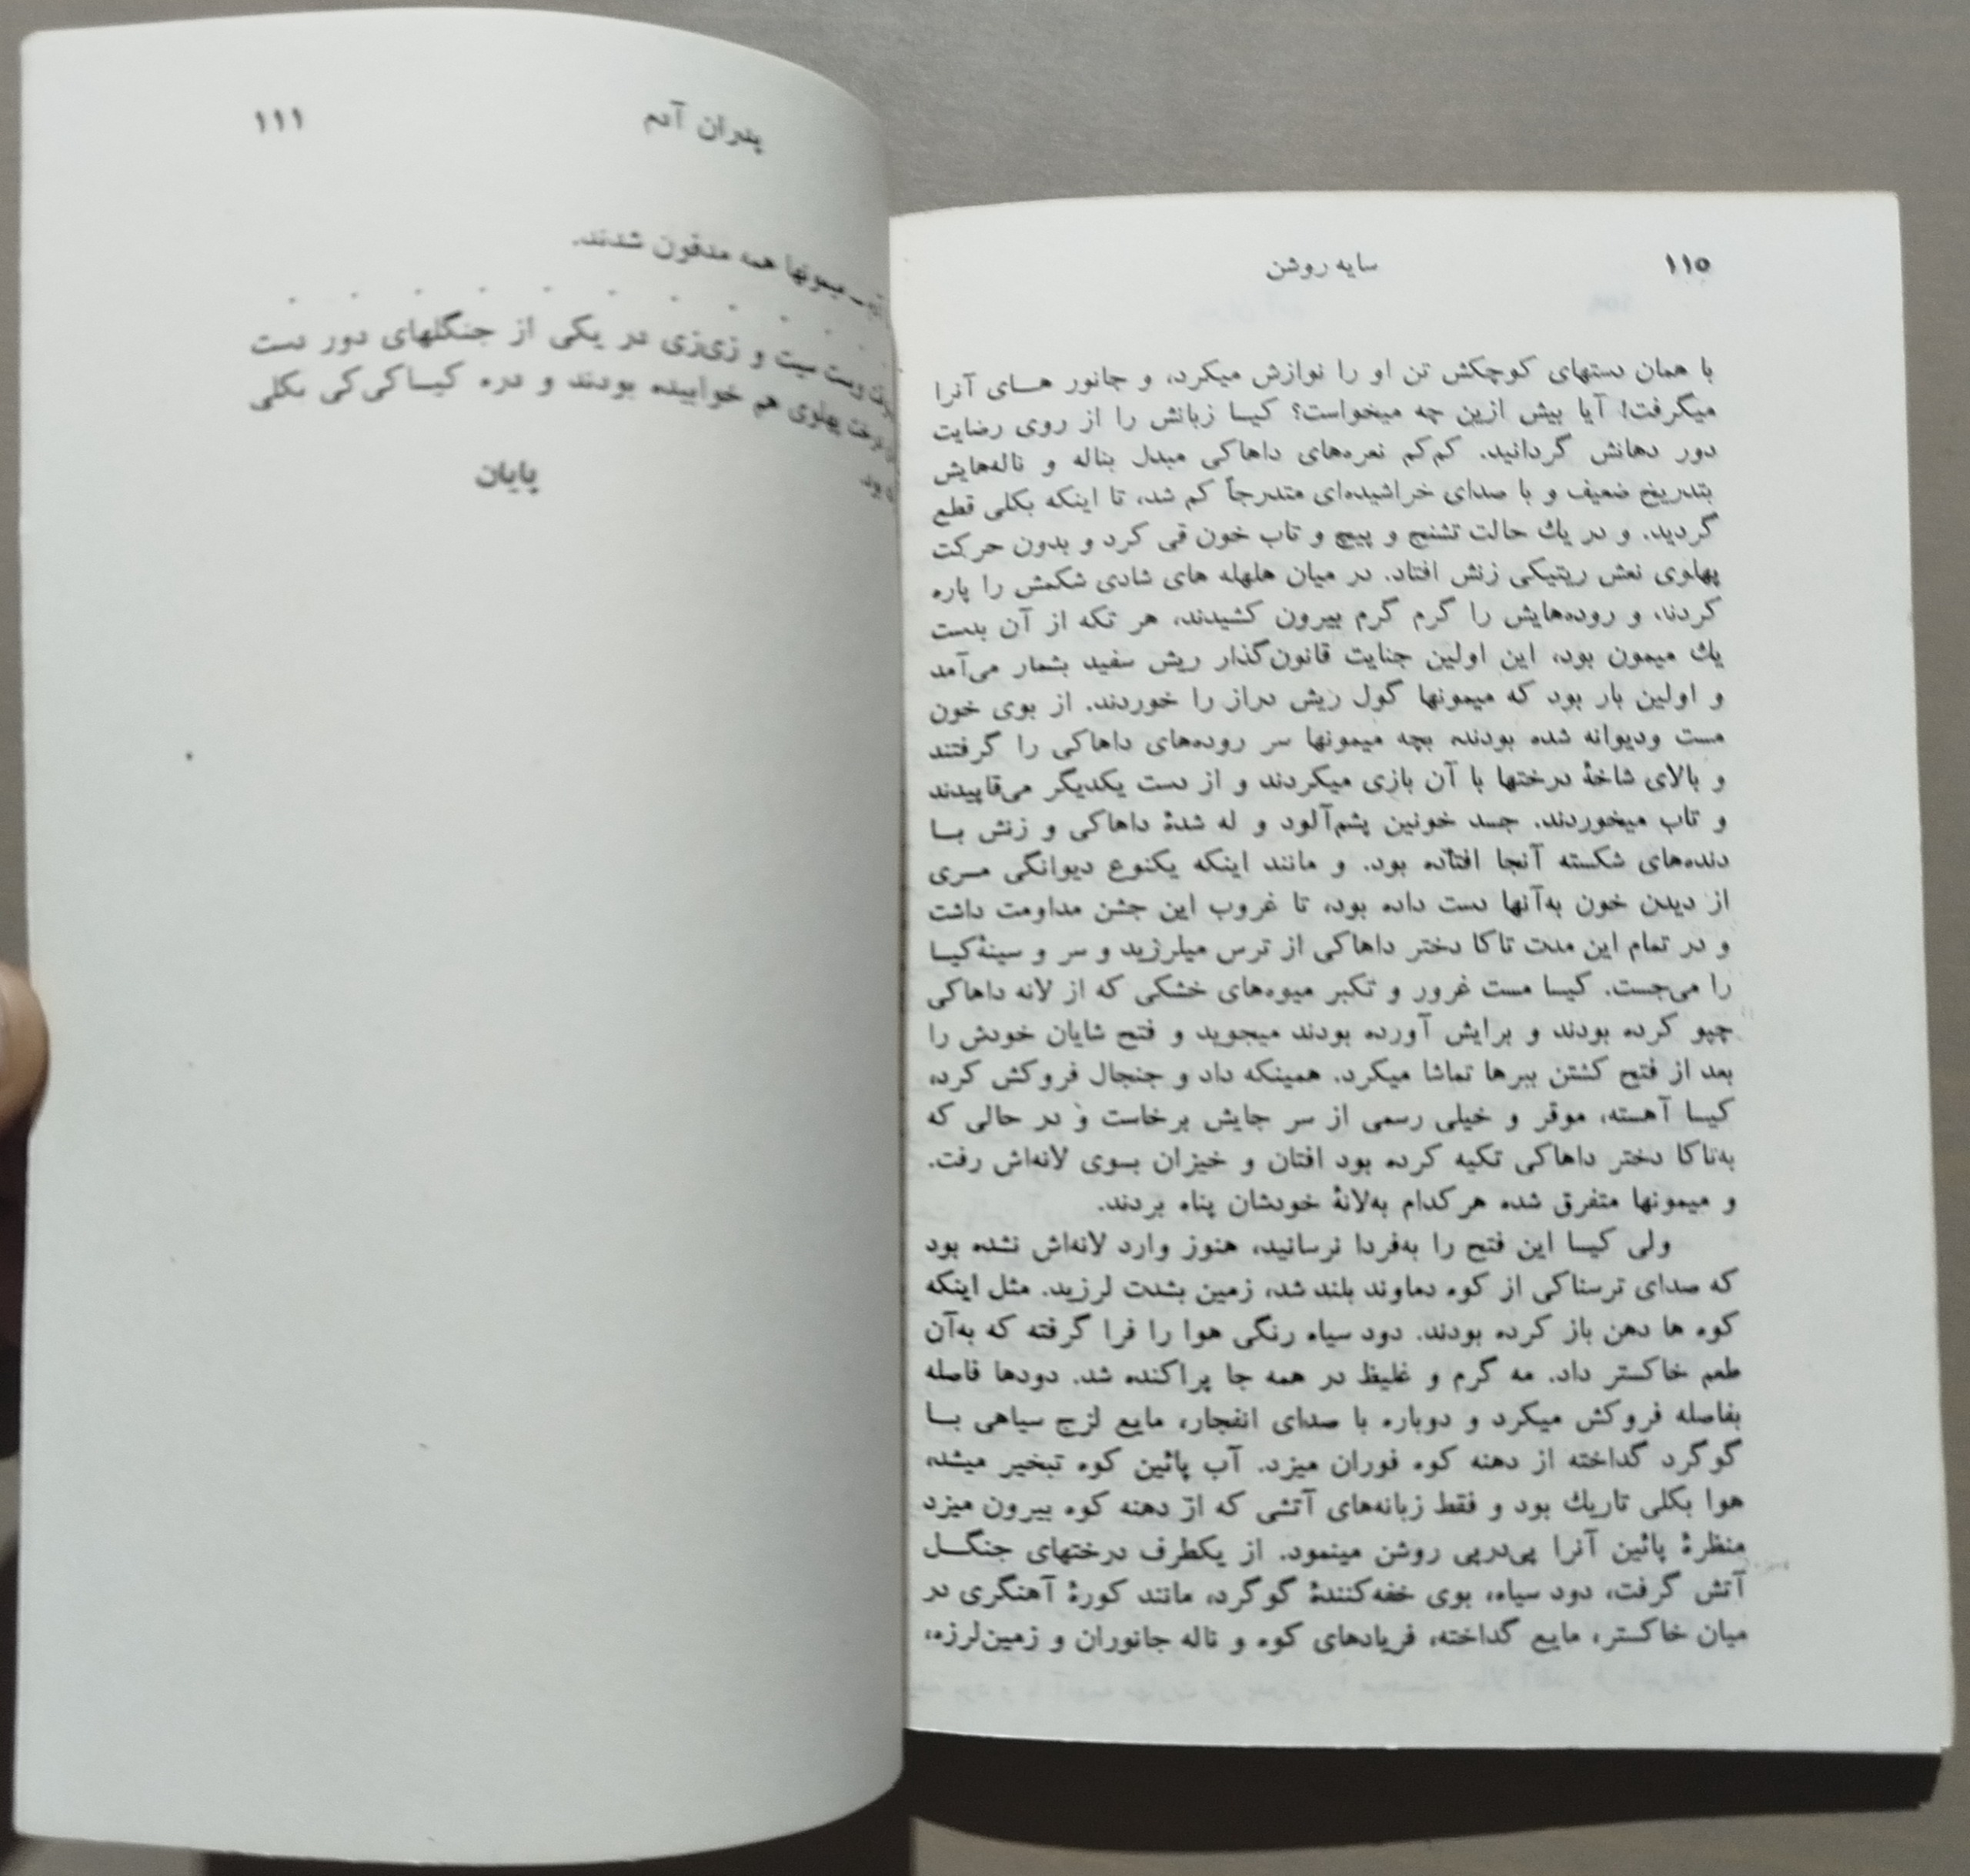 ۱۱۰
سایه روشن
با همان دستهای کوچکش تن او را نوازش میکرد، و جانور هـــای آنرا
میگرفت! آیا بیش ازین چه میخواست؟ کیسا زبانش را از روی رضایت
دور دهانش گردانید. کم‌کم نعره‌های داهاکی مبدل بناله و ناله‌هایش
بتدریخ ضعیف و با صدای خراشیده‌ای متدرجاً کم شد، تا اینکه بکلی قطع
گردید. و در یك حالت تشنج و پیچ و تاب خون قی کرد و بدون حرکت
پهلوی نعش ریتیکی زنش افتاد. در میان هلهله های شادی شکمش را پاره
کردند، و روده‌هایش را گرم گرم بیرون کشیدند، هر تکه از آن بدست
یك میمون بود، این اولین جنایت قانون‌گذار ریش سفید بشمار می‌آمد
و اولین بار بود که میمونها گول ریش دراز را خوردند. از بوی خون
مست ودیوانه شده بودند، بچه میمونها سر روده‌های داهاکی را گرفتند
و بالای شاخهٔ درختها با آن بازی میکردند و از دست یکدیگر می‌قاپیدند
و تاب میخوردند. جسد خونین پشم‌آلود و له شدهٔ داهاکی و زنش بــا
دنده‌های شکسته آنجا افتاده بود. و مانند اینکه یکنوع دیوانگی مــری
از دیدن خون به‌آنها دست داده بود، تا غروب این جشن مداومت داشت
و در تمام این مدت تاکا دختر داهاکی از ترس میلرزید و سر و سینهٔ‌کیسا
را می‌جست. کیسا مست غرور و تکبر میوه‌های خشکی که از لانه داهاکی
چپو کرده بودند و برایش آورده بودند میجوید و فتح شایان خودش را
بعد از فتح کشتن ببرها تماشا میکرد. همینکه داد و جنجال فروکش کرد،
کیسا آهسته، موقر و خیلی رسمی از سر جایش برخاست و در حالی که
به‌تاکا دختر داهاکی تکیه کرده بود افتان و خیزان بسوی لانه‌اش رفت.
و میمونها متفرق شده هرکدام به‌لانهٔ خودشان پناه بردند.
ولی کیسا این فتح را به‌فردا نرسانید، هنوز وارد لانه‌اش نشده بود
که صدای ترسناکی از کوه دماوند بلند شد، زمین بشدت لرزید. مثل اینکه
کوه ها دهن باز کرده بودند. دود سیاه رنگی هوا را فرا گرفته که به‌آن
طعم خاکستر داد. مه گرم و غلیظ در همه جا پراکنده شد. دودها فاصله
بفاصله فروکش میکرد و دوباره با صدای انفجار، مایع لزج سیاهی بــا
گوگرد گداخته از دهنه کوه فوران میزد. آب پائین کوه تبخیر میشد،
هوا بکلی تاریك بود و فقط زبانه‌های آتشی که از دهنه کوه بیرون میزد
منظرهٔ پائین آنرا پی‌درپی روشن مینمود. از یکطرف درختهای جنگــل
آتش گرفت، دود سیاه، بوی خفه‌کنندهٔ گوگرد، مانند کورهٔ آهنگری در
میان خاکستر، مایع گداخته، فریادهای کوه و ناله جانوران و زمین‌لرزه،
پدران آدم
۱۱۱
میمونها همه مدفون شدند.
وست سیت و زی‌زی در یکی از جنگلهای دور دست
درخت پهلوی هم خوابیده بودند و دره کیساکی‌کی بکلی
بود.
پایان